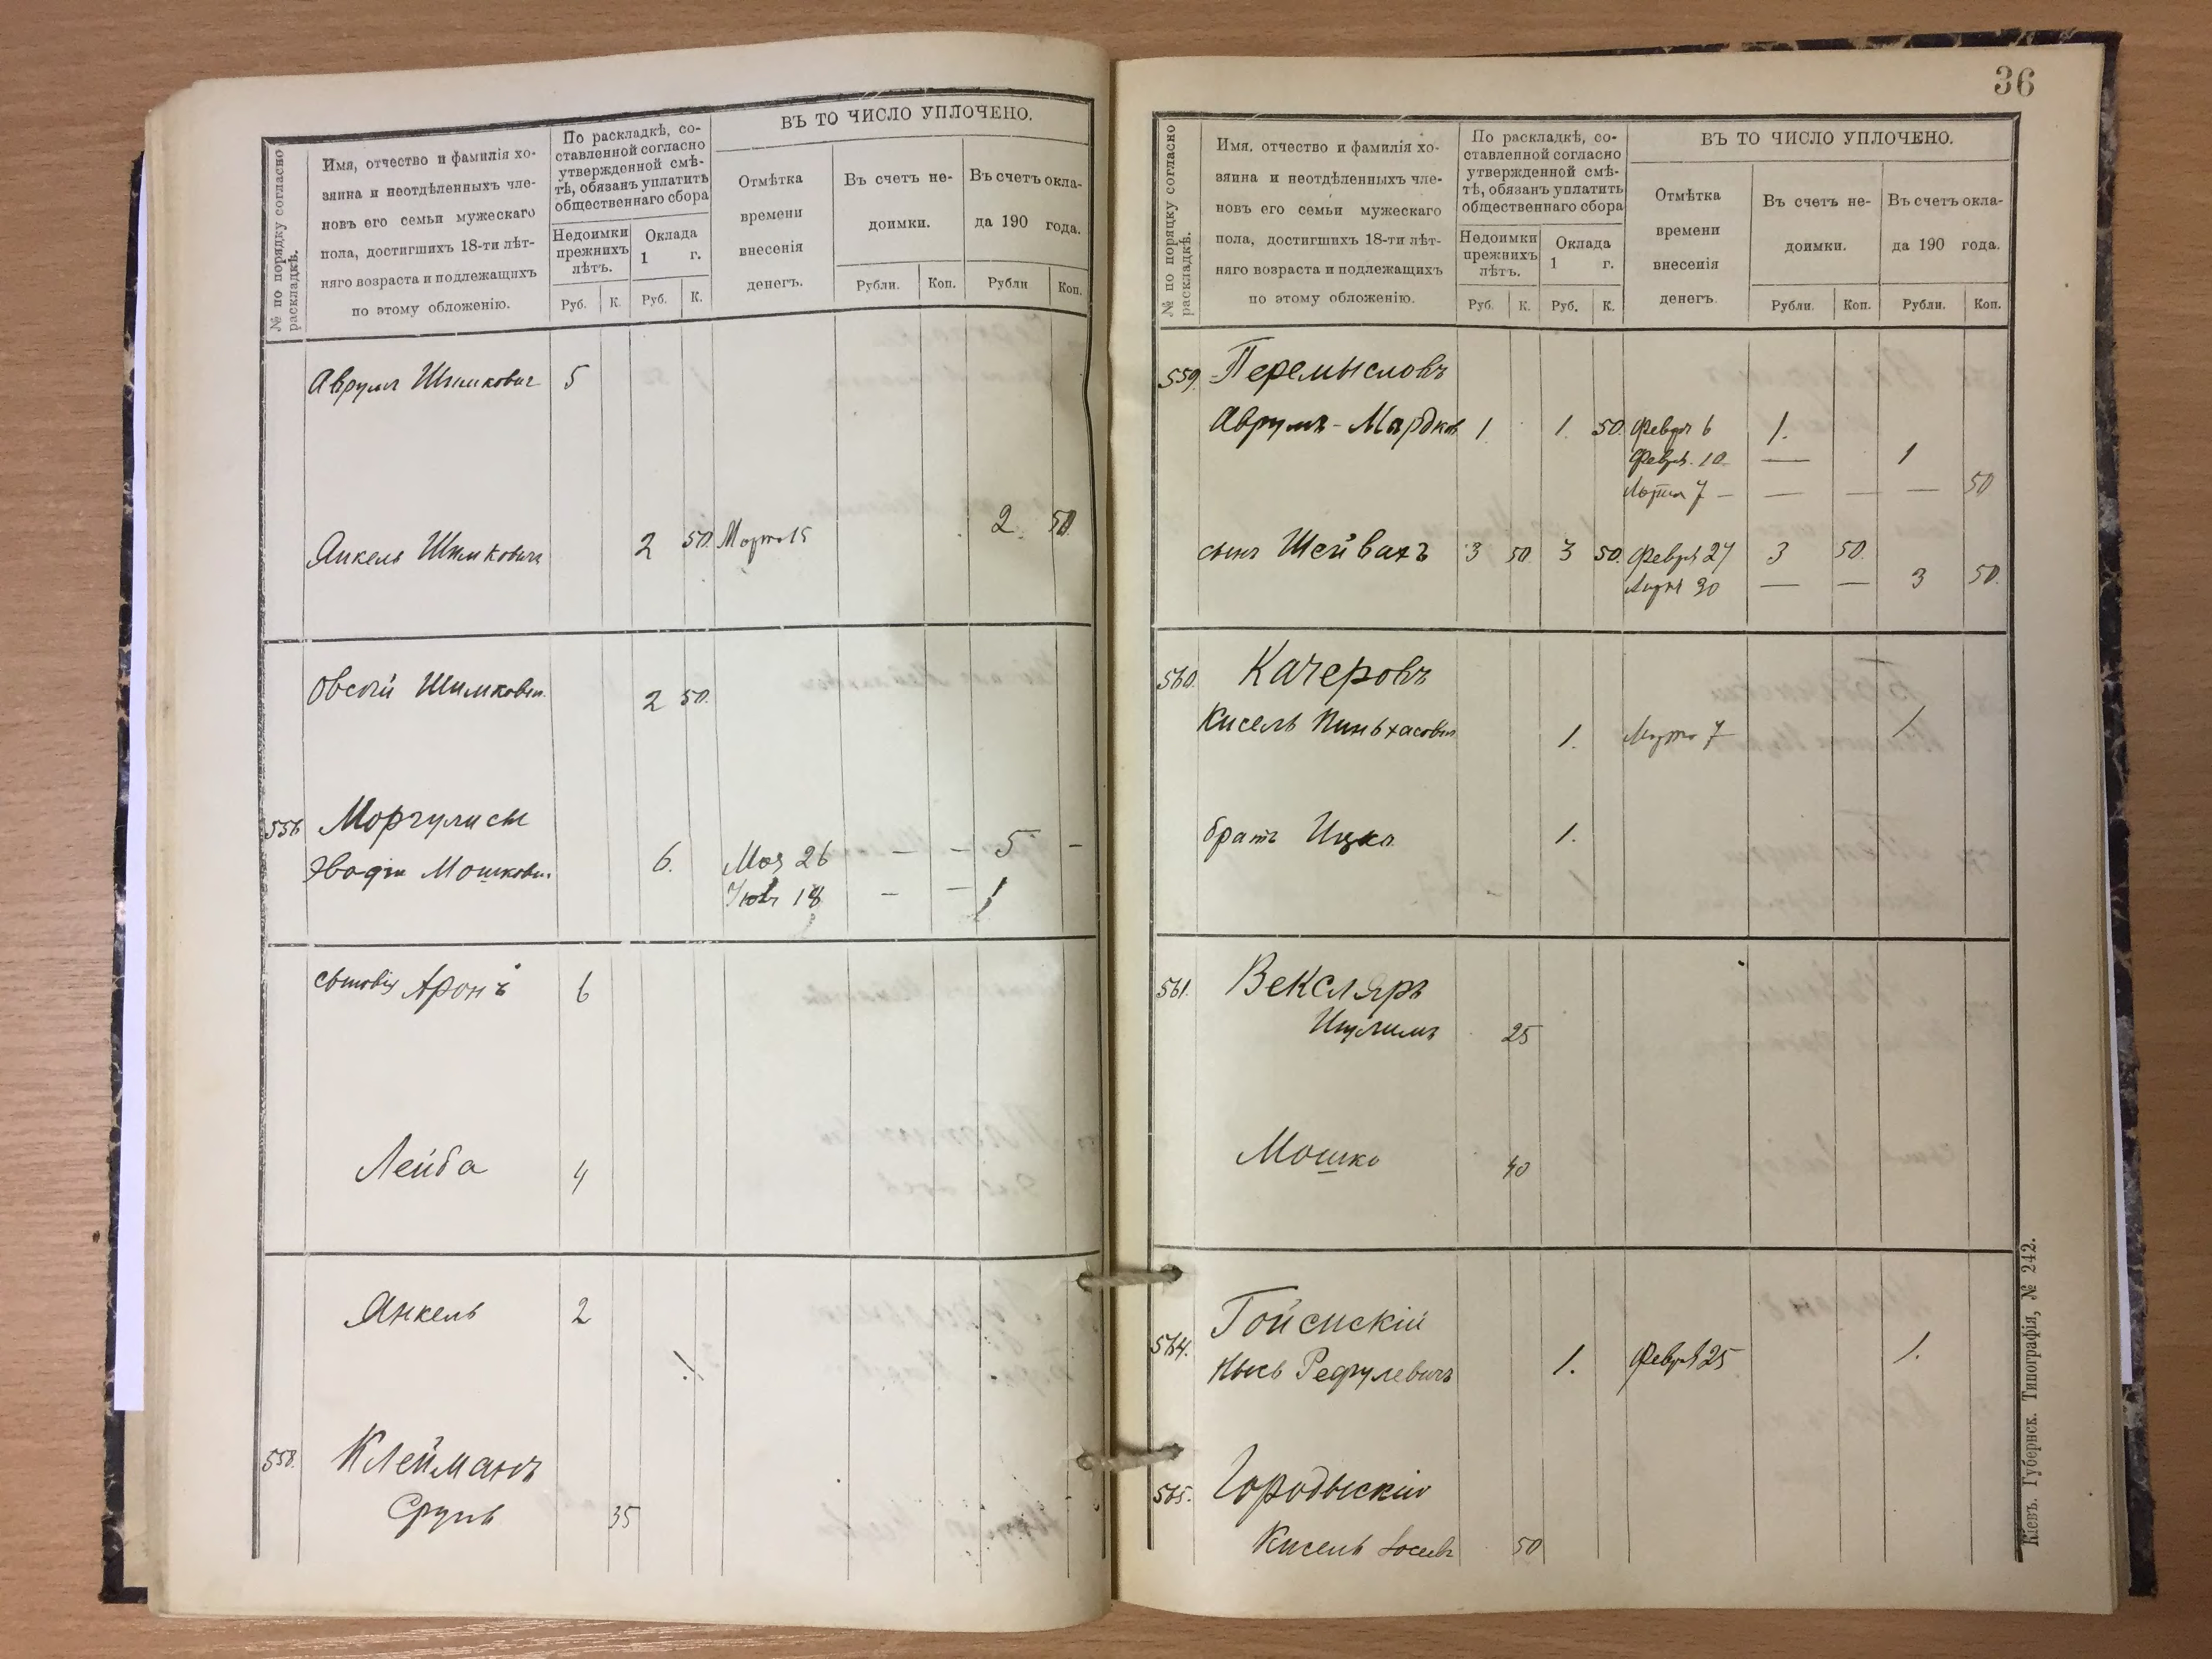 № по порядку согласно раскладкѣ.
Имя, отчество и фамилія хо-
зяина и неотдѣленныхъ чле-
новъ его семьи мужескаго
пола, достигшихъ 18-ти лѣт-
няго возраста и подлежащихъ
по этому обложенію.
По раскладкѣ, со-
ставленной согласно
утвержденной смѣ-
тѣ, обязанъ уплатить
общественнаго сбора
Недоимки
прежнихъ
лѣтъ.
Оклада
1 г.
Руб. К. Руб. К.
ВЪ ТО ЧИСЛО УПЛОЧЕНО.
Отмѣтка
времени
внесенія
денегъ.
Въ счетъ не-
доимки.
Въ счетъ окла-
да 190 года.
Рубли. Коп. Рубли Коп.
Аврумъ Шимкович 5
Янкель Шимкович 2 50. Марта 15 2. 50
Овсей Шимкович 2 50.
556 Моргулисы
Мошкович 6. Мая 26 — — 5 —
18 — — 1
сыновья Аронъ 6
Лейба 4
Янкель 2
558. Клейманъ
Сруль 35
36
№ по порядку согласно раскладкѣ.
Имя, отчество и фамилія хо-
зяина и неотдѣленныхъ чле-
новъ его семьи мужескаго
пола, достигшихъ 18-ти лѣт-
няго возраста и подлежащихъ
по этому обложенію.
По раскладкѣ, со-
ставленной согласно
утвержденной смѣ-
тѣ, обязанъ уплатить
общественнаго сбора
Недоимки
прежнихъ
лѣтъ.
Оклада
1 г.
Руб. К. Руб. К.
ВЪ ТО ЧИСЛО УПЛОЧЕНО.
Отмѣтка
времени
внесенія
денегъ.
Въ счетъ не-
доимки.
Въ счетъ окла-
да 190 года.
Рубли. Коп. Рубли. Коп.
559. Перемысловъ
Аврумъ-Мардков 1 1. 50. Февр 6 1.
Февр. 10 — 1
Марта 7 — — — — 50
сынъ Шейвахъ 3 50 3 50. Февр 27 3 50.
30 — — 3 50.
560. Качеровъ
Кисель Пиньхасович 1. Марта 7 1
братъ Ицко 1.
561. Векслярь
25
Мошко 40
564. Гойсискій
1. Февр 25 1.
565. Городыскій
Кисель 50
Кіевъ. Губернск. Типографія, № 242.